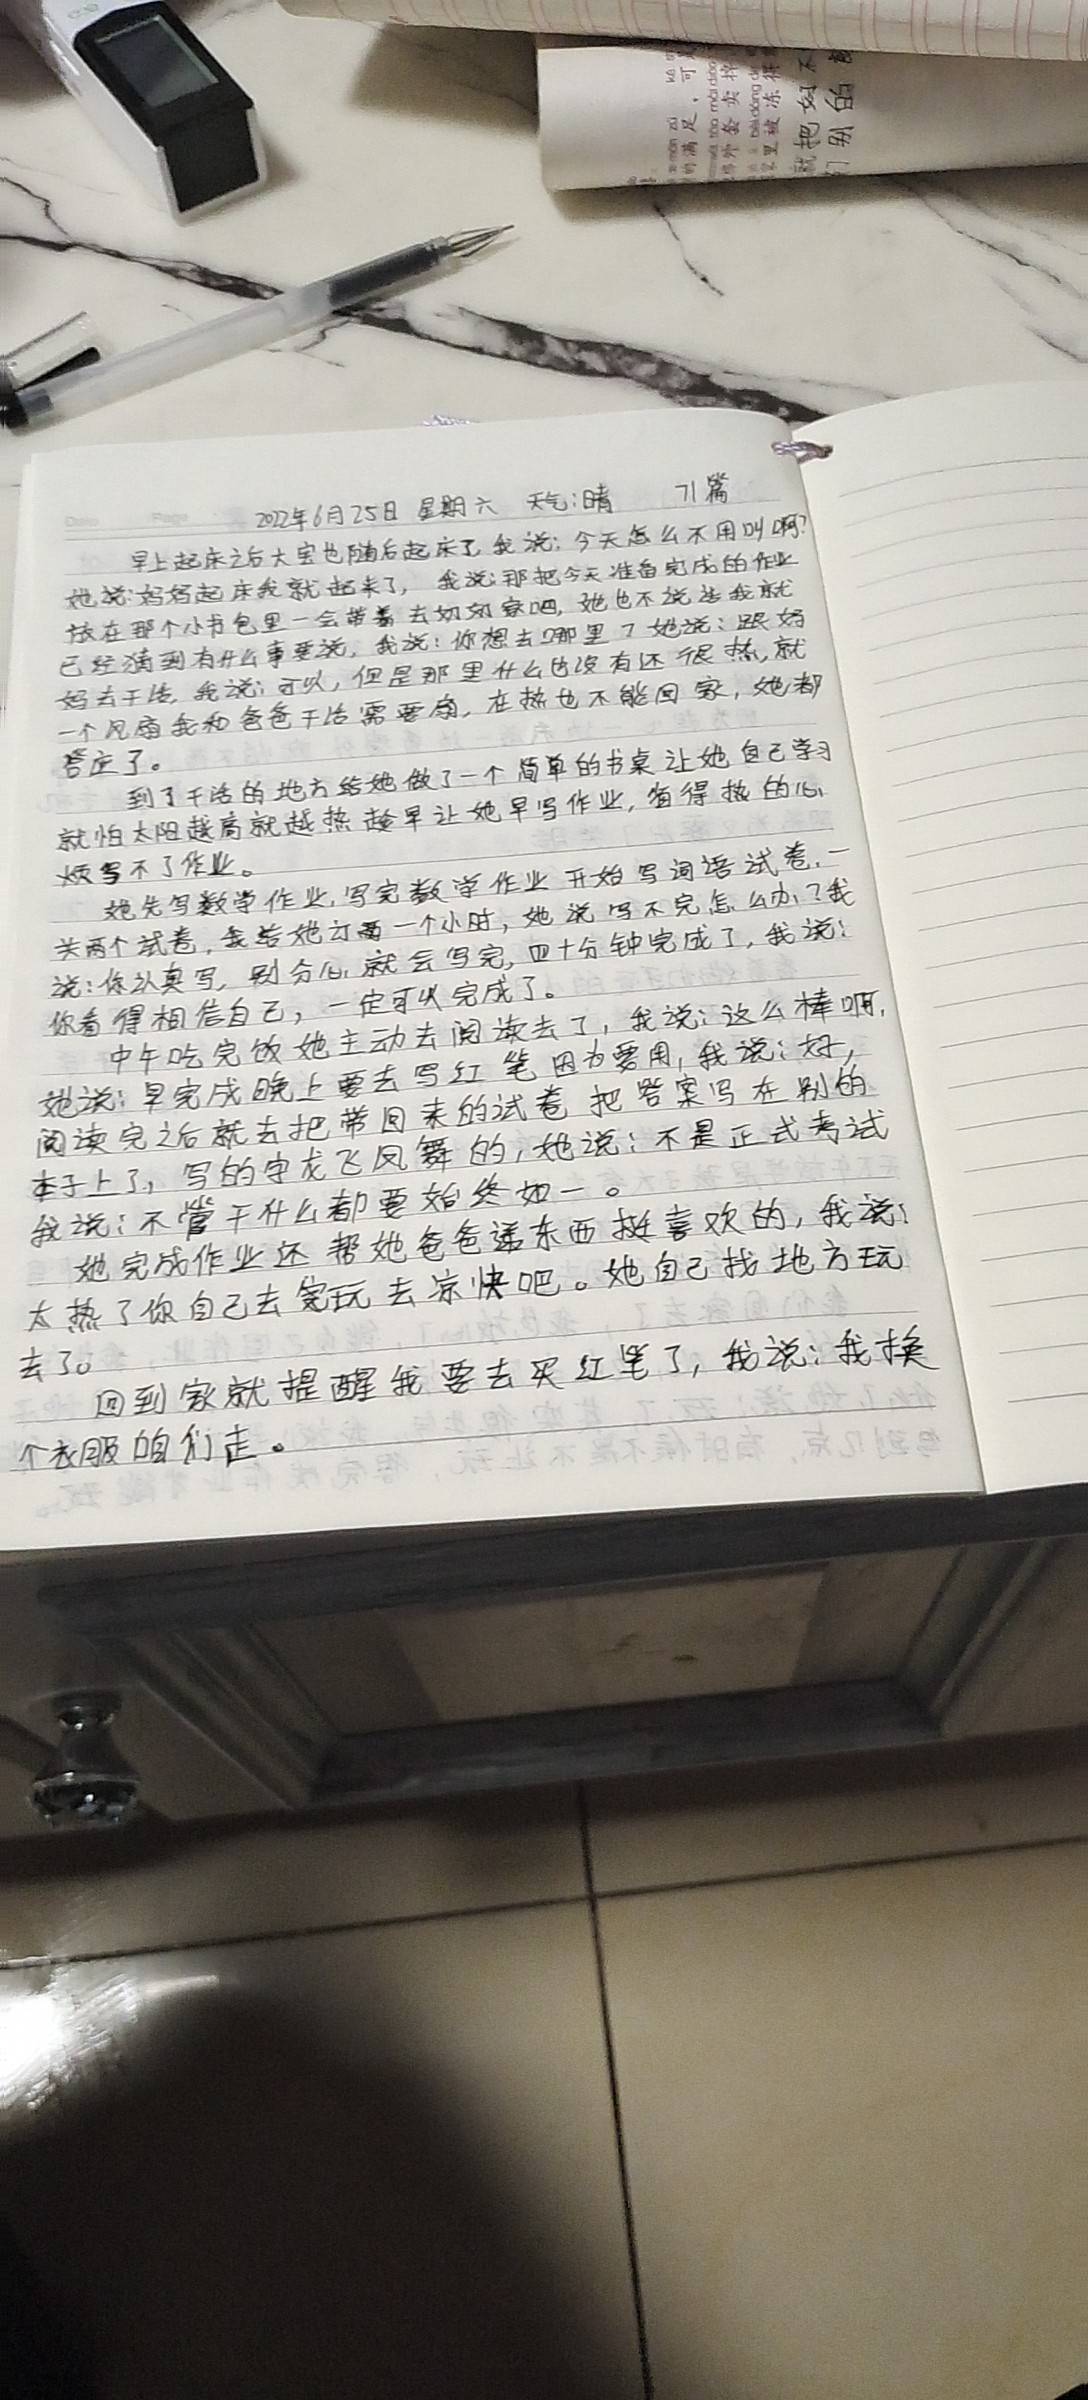 2022年6月25日 星期六 天气:晴 71篇
早上起床之后大宝也随后起床了,我说:今天怎么不用叫啊?
她说:妈妈起床我就起来了,我说:那把今天准备完成的作业
放在那个小书包里一会带着去奶奶家吧,她也不说话我就
已经猜到有什么事要说,我说:你想去哪里?她说:跟妈
妈去干活,我说:可以,但是那里什么也没有还很热,就
一个风扇我和爸爸干活需要扇,在热也不能回家,她都
答应了。
到了干活的地方给她做了一个简单的书桌让她自己学习
就怕太阳越高就越热趁早让她早写作业,省得热的心
烦写不了作业。
她先写数学作业,写完数学作业开始写词语试卷,一
共两个试卷,我给她订两一个小时,她说写不完怎么办?我
说:你认真写,别分心就会写完,四十分钟完成了,我说:
你看得相信自己,一定可以完成了。
中午吃完饭她主动去阅读去了,我说:这么棒啊,
她说:早完成晚上要去写红笔因为要用,我说:好,
阅读完之后就去把带回来的试卷把答案写在别的
本子上了,写的字龙飞凤舞的,她说:不是正式考试
我说:不管干什么都要始终如一。
她完成作业还帮她爸爸递东西挺喜欢的,我说:
太热了你自己去玩去凉快吧。她自己找地方玩
去了。
回到家就提醒我要去买红笔了,我说:我换
个衣服咱们走。
的满足,可
外套卖掉
里被冻得
就把如不
们别的